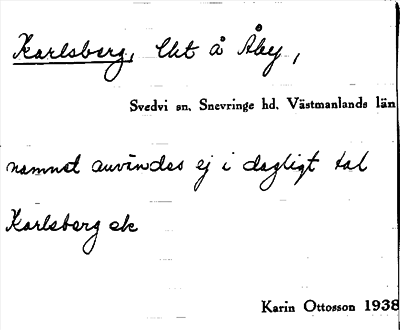 Karlsberg, lht å Åby,
Svedvi sn. Snevringe hd. Västmanlands län
namnet användes ej i dagligt tal
Karlsberg ek
Karin Ottosson 1938